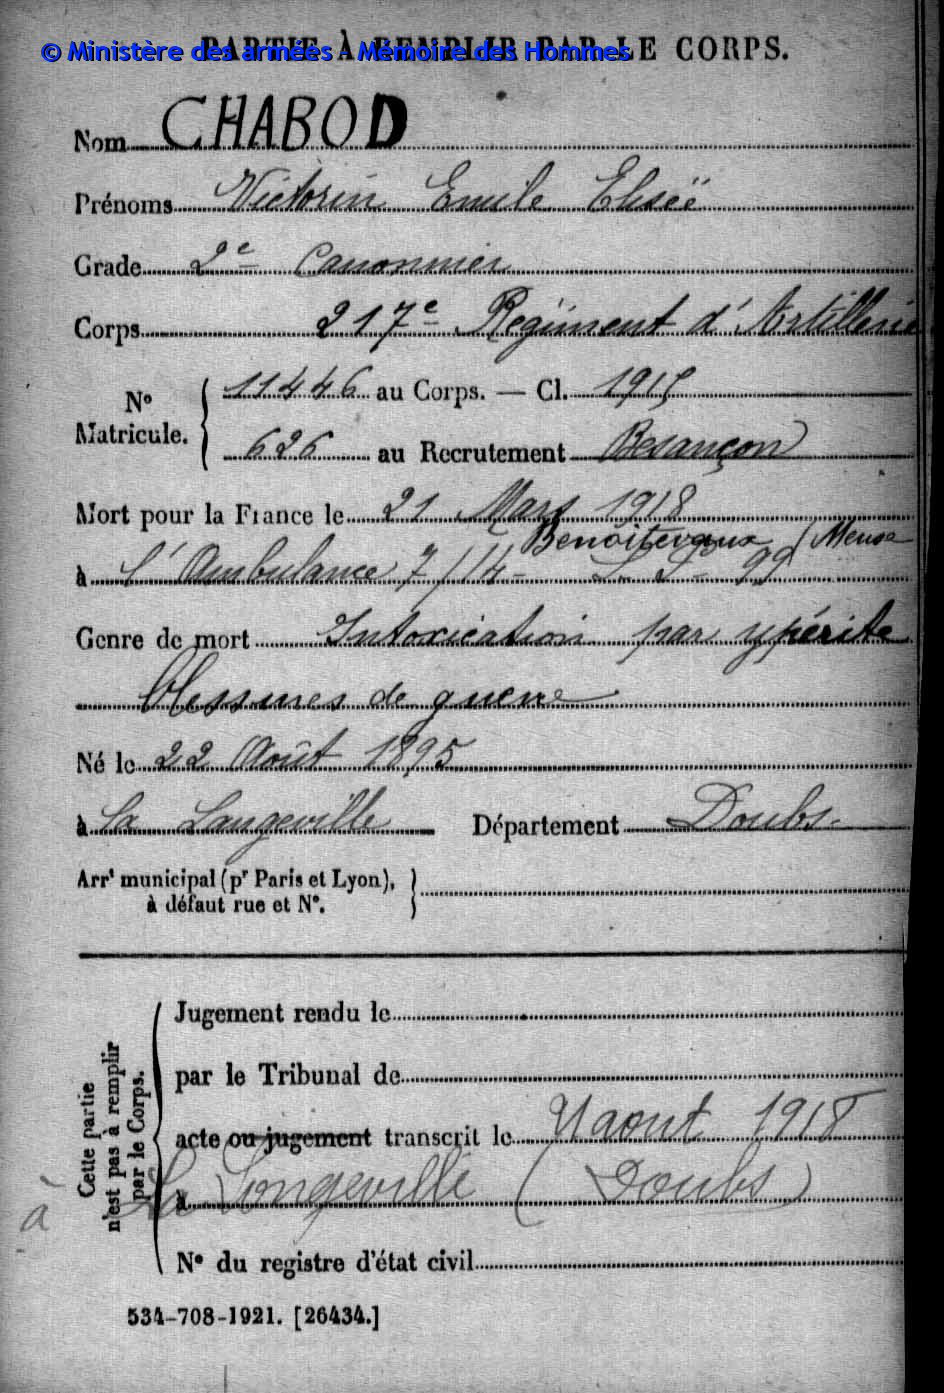 PARTIE À REMPLIR PAR LE CORPS.
© Ministère des armées - Mémoire des Hommes
Nom CHABOD
Prénoms Victorin Emile Elisëe
Grade 2e Canonnier
Corps 217e Régiment d'Artillerie
No Matricule. { 11446 au Corps. — Cl. 1915
626 au Recrutement Besançon
Mort pour la France le 21 Mars 1918
Benoitevaux (Meuse
à l'Ambulance 7/14 - S. P. 99
Genre de mort Intoxication par ypérite
blessures de guerre
Né le 22 Août 1895
à la Longeville Département Doubs.
Arrt municipal (pr Paris et Lyon), }
à défaut rue et No.
Cette partie n'est pas à remplir par le Corps.
Jugement rendu le
par le Tribunal de
acte ou jugement transcrit le aout 1918
à à La Longeville (Doubs)
No du registre d'état civil
534-708-1921. [26434.]